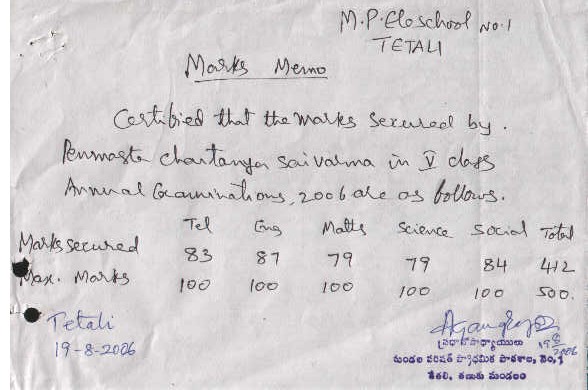 M.P. Ele school No. 1
TETALI
Marks Memo
Certified that the marks secured by.
Penmasta chaitanya Sai varma in V class
Annual Examinations, 2006 are as follows.
Tel Eng Maths Science Social Total
Marks secured 83 87 79 79 84 412
Max. Marks 100 100 100 100 100 500.
Tetali
19-8-2006
ప్రధానోపాధ్యాయులు
మండల పరిషత్ ప్రాథమిక పాఠశాల, నెం. 1
తేతలి, తణుకు మండలం